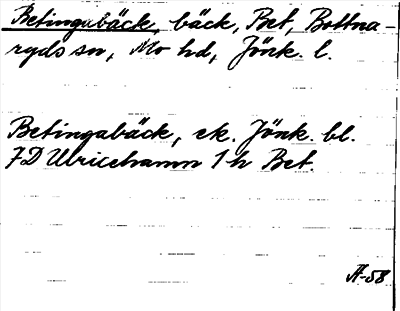 Betingabäck, bäck, Bet, Bottna-
ryds sn, Mo hd, Jönk. l.
Betingabäck, ek. Jönk. bl.
7D Ulricehamn 1h Bet.
Ä-58